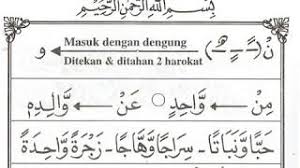 بِسْمِ اللهِ الرَّحْمٰنِ الرَّحِيْمِ
نْ (ـًـ ـٍـ ـٌـ) Masuk dengan dengung و
Ditekan & ditahan 2 harokat
مِنْ ← وَّاحِدٍ ○ عَنْ ← وَّالِدِهٖ
حَبًّا وَّنَبَاتًا - سِرَاجًا وَّهَّاجًا - زَجْرَةٌ وَّاحِدَةٌ